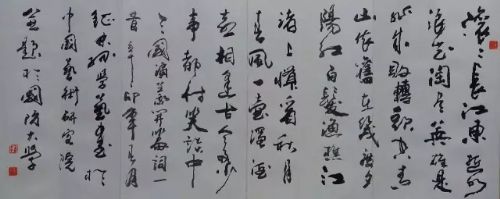 滾滾長江東逝水
浪花淘盡英雄是
非成敗轉頭空青
山依舊在幾度夕
陽紅白髮漁樵江
渚上慣看秋月
春風一壺濁酒
喜相逢古今多少
事都付笑談中
三國演義開篇詞一
首辛卯年月
學藝於
中國藝術研究院
並題於國防大學